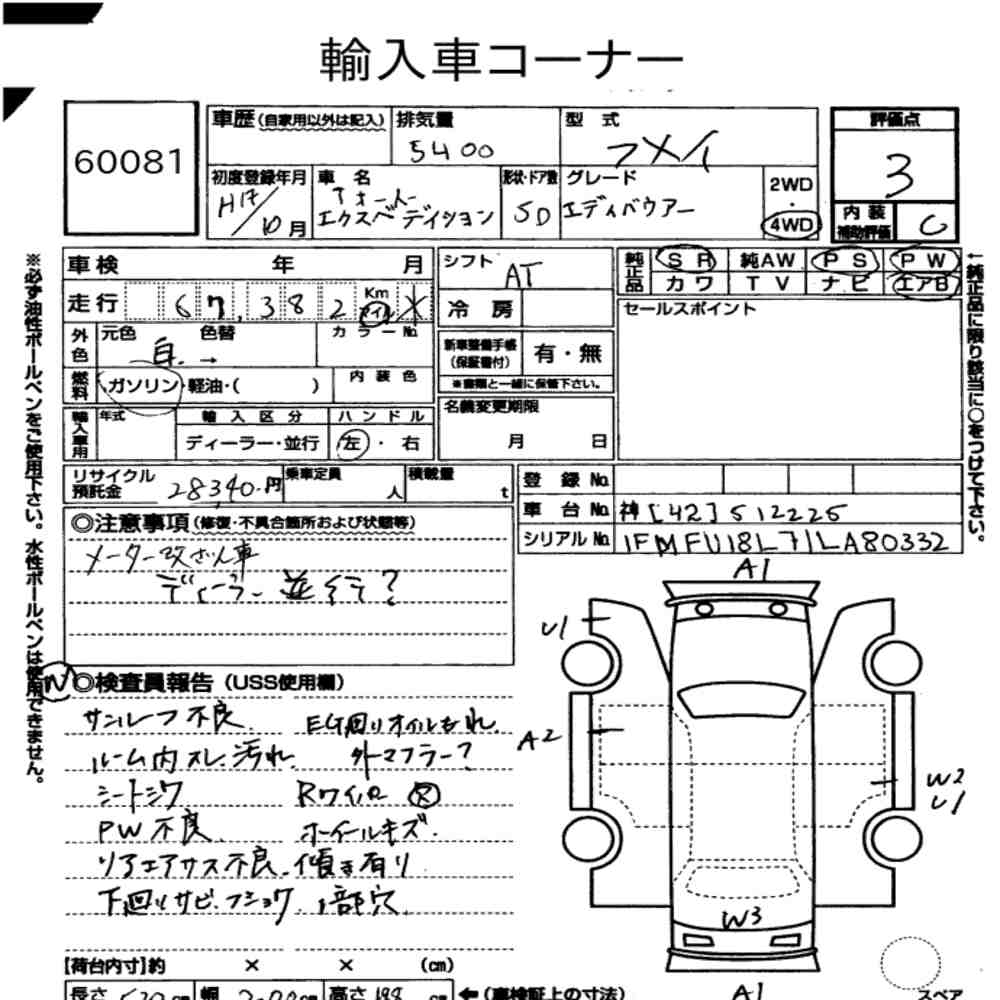 輸入車コーナー
60081
車歴 (自家用以外は記入)
排気量
5400
型式
フメイ
評価点
3
初度登録年月
H17/10月
車名
フォード
エクスペディション
形状・ドア数
5D
グレード
エディバウアー
2WD
・
4WD
内装
補助評価
C
車検 年 月
走行 67,382 Km マイル
シフト
AT
純正品
SR 純AW PS PW
カワ TV ナビ エアB
外色
元色 色替
カラーNo.
白 →
冷房
セールスポイント
新車整備手帳
(保証書付)
有・無
※書類と一緒に保管下さい。
燃料
ガソリン・軽油・( )
内装色
輸入車用
年式
輸入区分
ディーラー・並行
ハンドル
左・右
名義変更期限
月 日
リサイクル
預託金
28340円
乗車定員
人
積載量
t
登録No.
車台No. 神[42]512225
シリアルNo. 1FMFU18L71LA80332
◎注意事項(修復・不具合箇所および状態等)
メーター改ざん車
ディーラー並行?
◎検査員報告 (USS使用欄)
サンルーフ不良
EG回りオイルもれ
ルーム内スレ汚れ
外マフラー?
シートシワ
Rワイパー
PW不良
ホイールキズ
リアエアサス不良 傾き有り
下廻りサビ.フショク 1部穴
【荷台内寸】約 × × (cm)
長さ 520 cm 幅 200 cm 高さ 198 cm
←(車検証上の寸法)
A1
U1
A2
W2
U1
W3
A1
スペア
※必ず油性ボールペンをご使用下さい。水性ボールペンは使用できません。
←純正品に限り該当に○をつけて下さい。